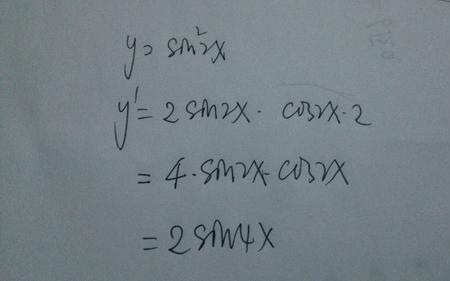 y = sin²2x
y' = 2 sin2x · cos2x · 2
= 4 · sin2x · cos2x
= 2 sin4x